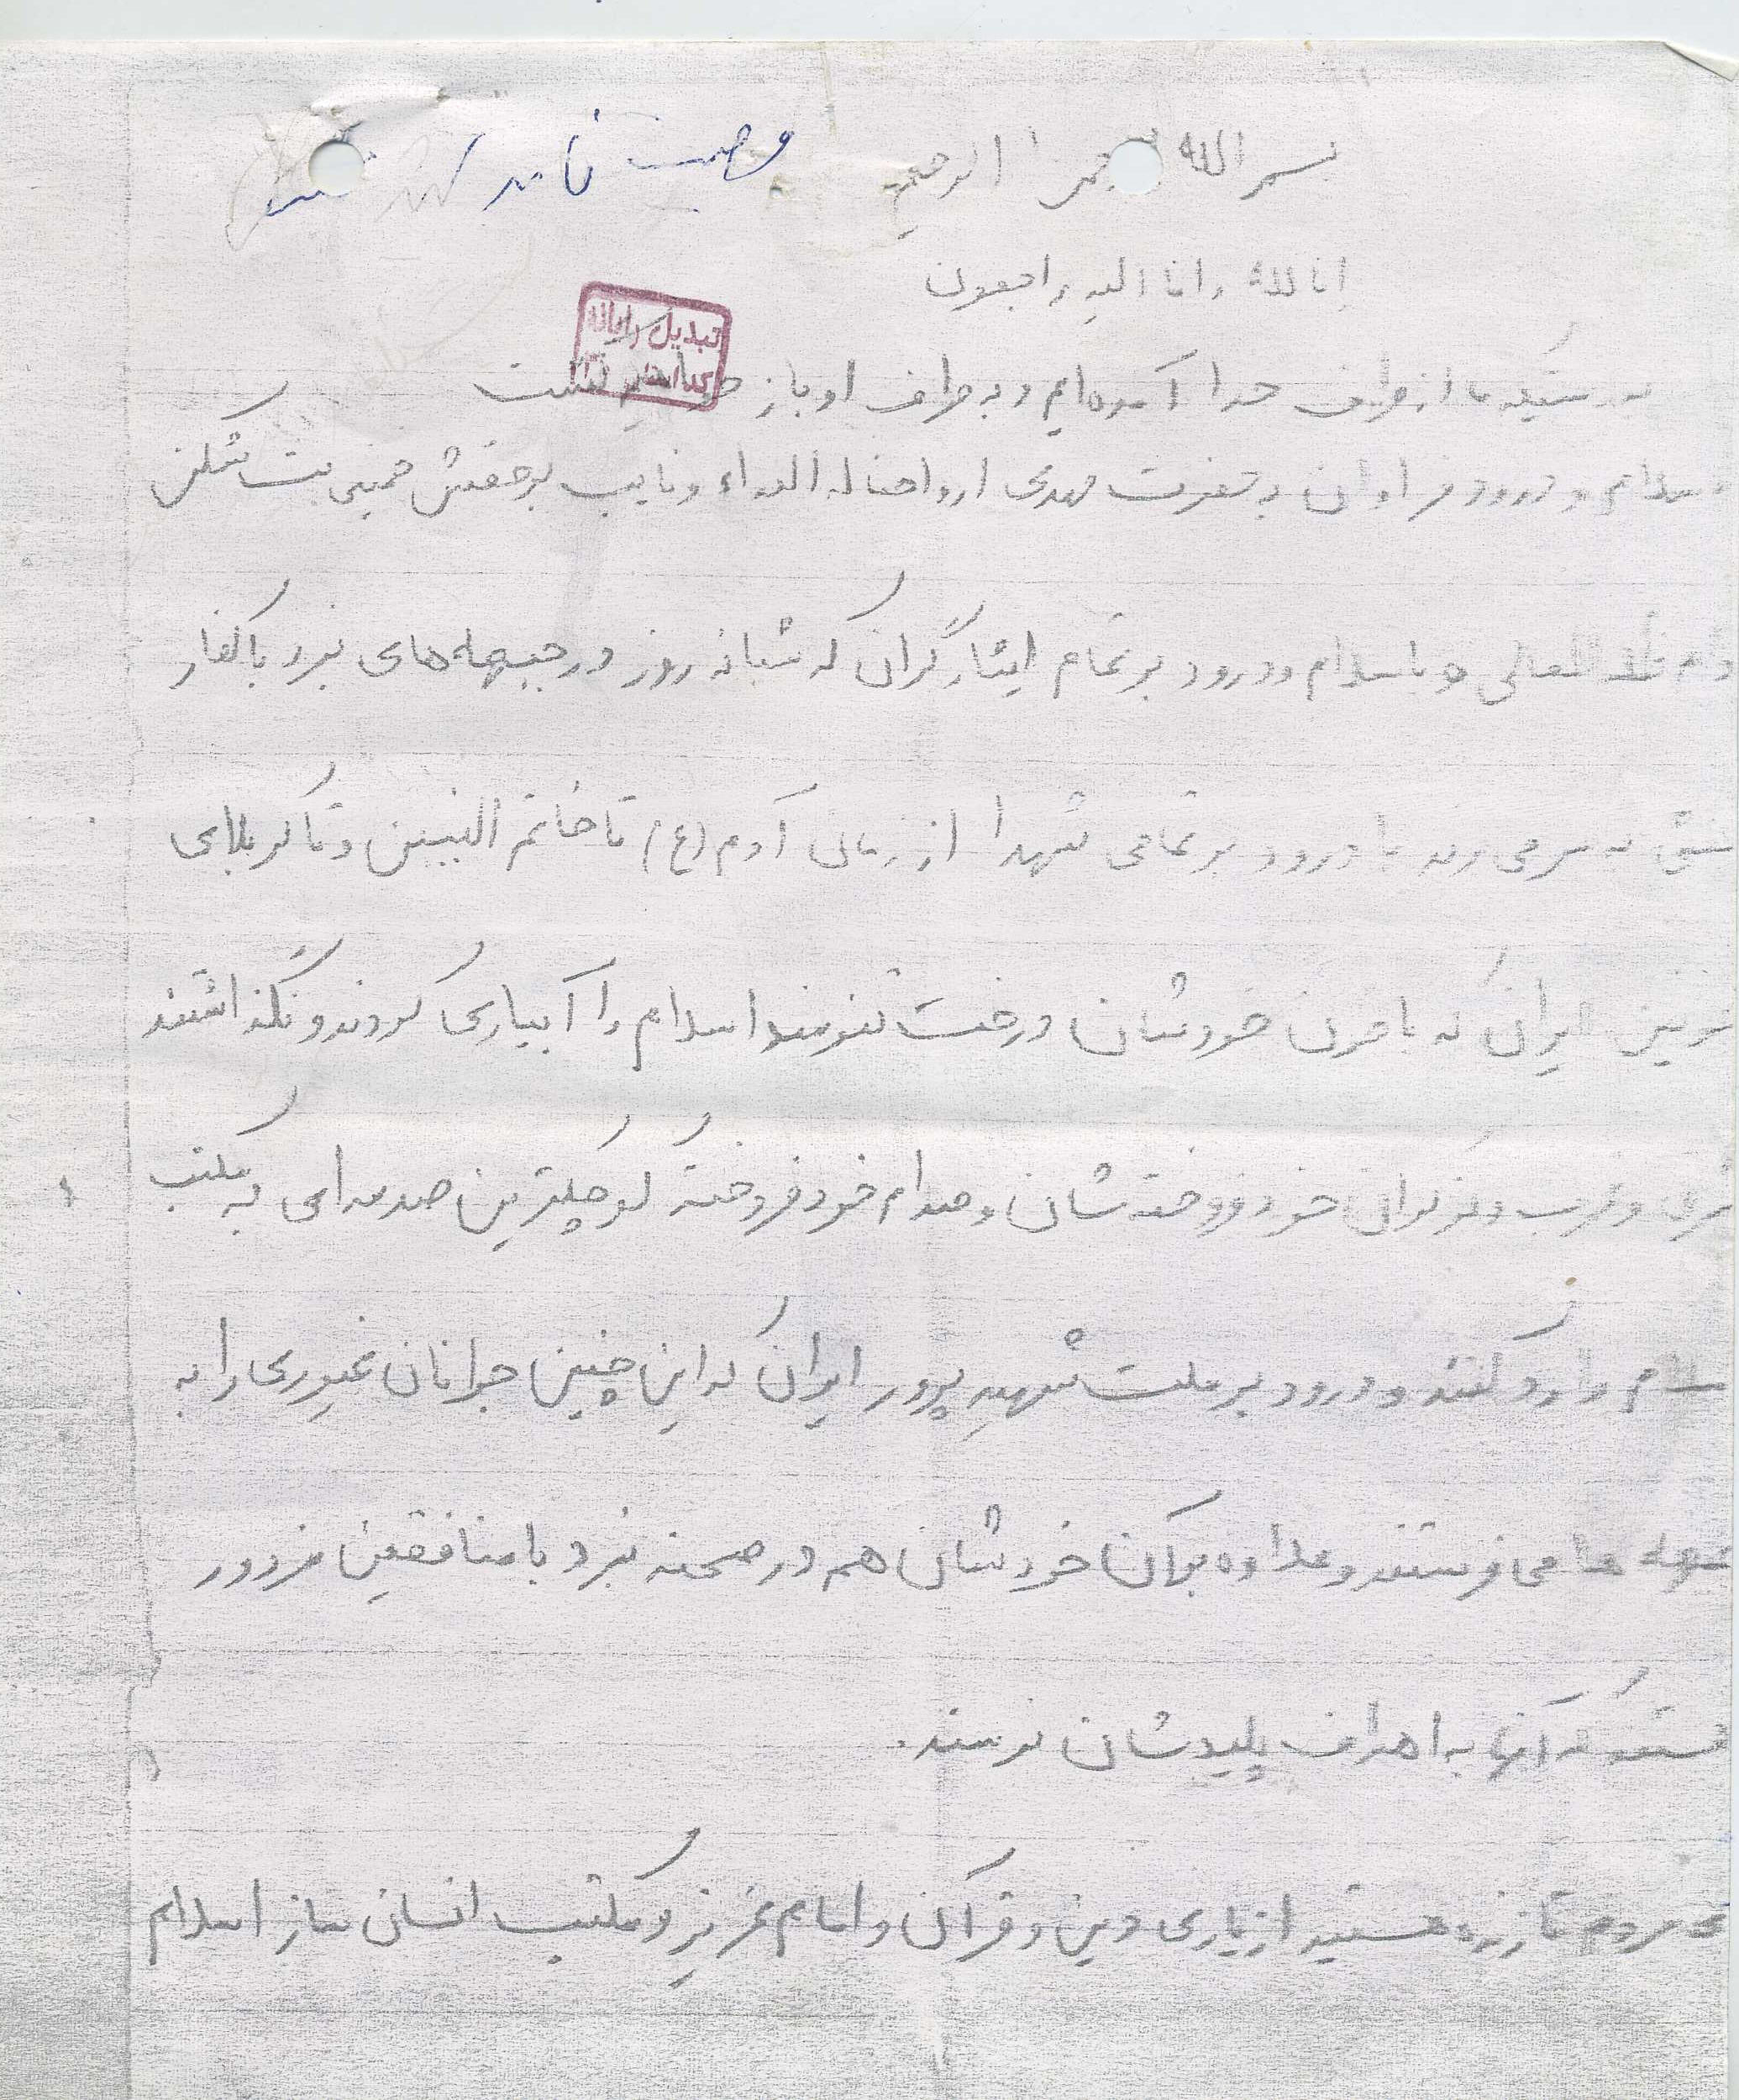 بسم الله الرحیم
وصیت نامه
انا لله و انا الیه راجعون
تبدیل رایانه
بدرستیکه ما از طرف خدا آمده‌ایم و به طرف او باز خواهیم گشت
سلام و درود فراوان به حضرت مهدی ارواحنا له الفداء و نایب برحقش خمینی بت شکن
دام ظله العالی و با سلام و درود بر تمام ایثارگران که شبانه روز در جبهه‌های نبرد با کفار
به سر می برند با درود بر تمامی شهدا از زمان آدم (ع) تا خاتم النبیین و تا کربلای
خونین ایران که با خون خودشان درخت تنومند اسلام را آبیاری کردند و نگذاشتند
شرق و غرب و نوکران خود فروخته شان و صدام خود فروخته کوچکترین صدمه‌ای به مکتب
اسلام را وارد کنند و درود بر ملت شهید پرور ایران که این چنین جوانان غیوری را به
جبهه ها می فرستند و علاوه بر آن خودشان هم در صحنه نبرد با منافقین مزدور
هستند که آنها به اهداف پلیدشان نرسند.
ای مردم تا زنده هستید از یاری دین و قرآن و امام عزیز و مکتب انسان ساز اسلام